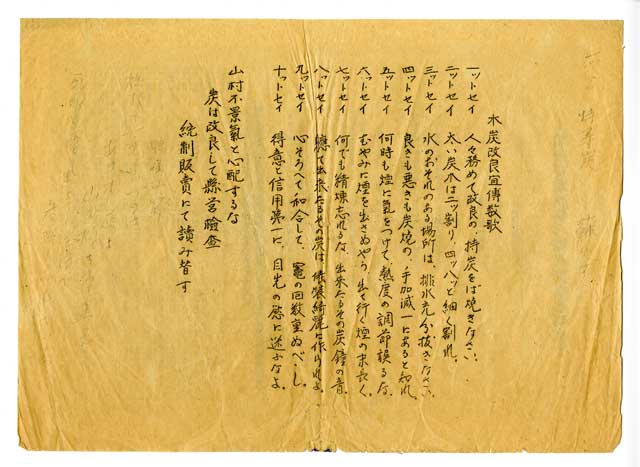 木炭改良宣傳数歌
一ットセイ 人々務めて改良の、特炭をば焼きなさい、
二ットセイ 太い炭木は二ッ割り、四ッ八ッと細く割れ、
三ットセイ 水のおそれのある場所は、排水充分抜きなさい、
四ットセイ 良きも悪きも炭焼の、手加減一にあると知れ、
五ットセイ 何時も煙に氣をつけて、熱度の調節誤るな、
六ットセイ むやみに煙を出さぬやう、出て行く煙の末長く、
七ットセイ 何でも精煉忘れるな、出来たるその炭鐘の音、
八ットセイ 出来たるその炭は、俵装綺麗に作られよ、
九ットセイ 心そろへて和合して、竃の回数重ぬべし、
十ットセイ 得意と信用第一に、目先の慾に迷ふなよ、
山村不景氣と心配するな
炭は改良して縣営檢査
統制販賣にて讀み替す